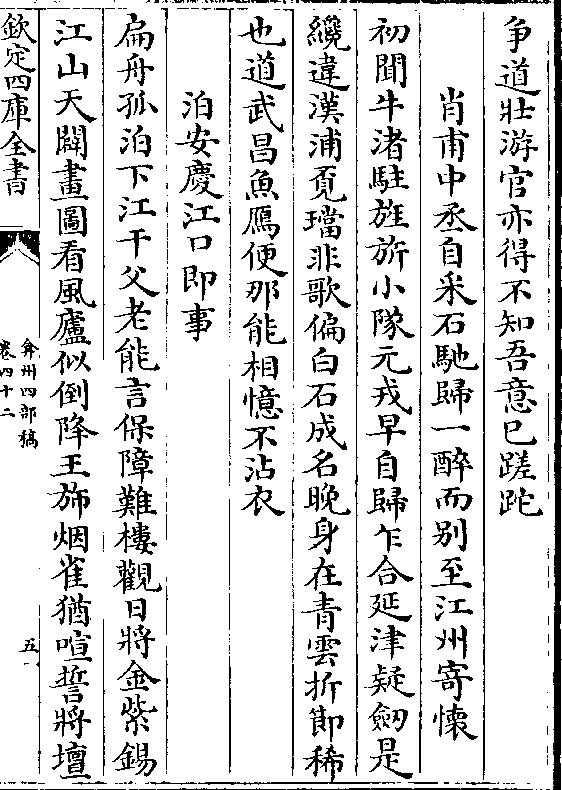 争道壯游官亦得不知吾意已蹉跎
肖甫中丞自采石馳歸一醉而別至江州寄懐
初聞牛渚駐旌旂小隊元戎早自歸乍合延津疑劒是
纔違漢浦覓璫非歌偏白石成名晚身在青雲折節稀
也道武昌魚鴈便那能相憶不沾衣
泊安慶江口即事
扁舟孤泊下江干父老能言保障難樓觀日將金紫錫
江山天闢畫圖看風廬似倒降王斾烟雀猶喧誓將壇
欽定四庫全書
弇州四部稿
卷四十二
五